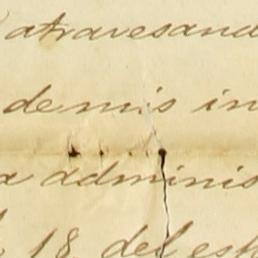 atravesand
de mis in
a adminis
18 del esp